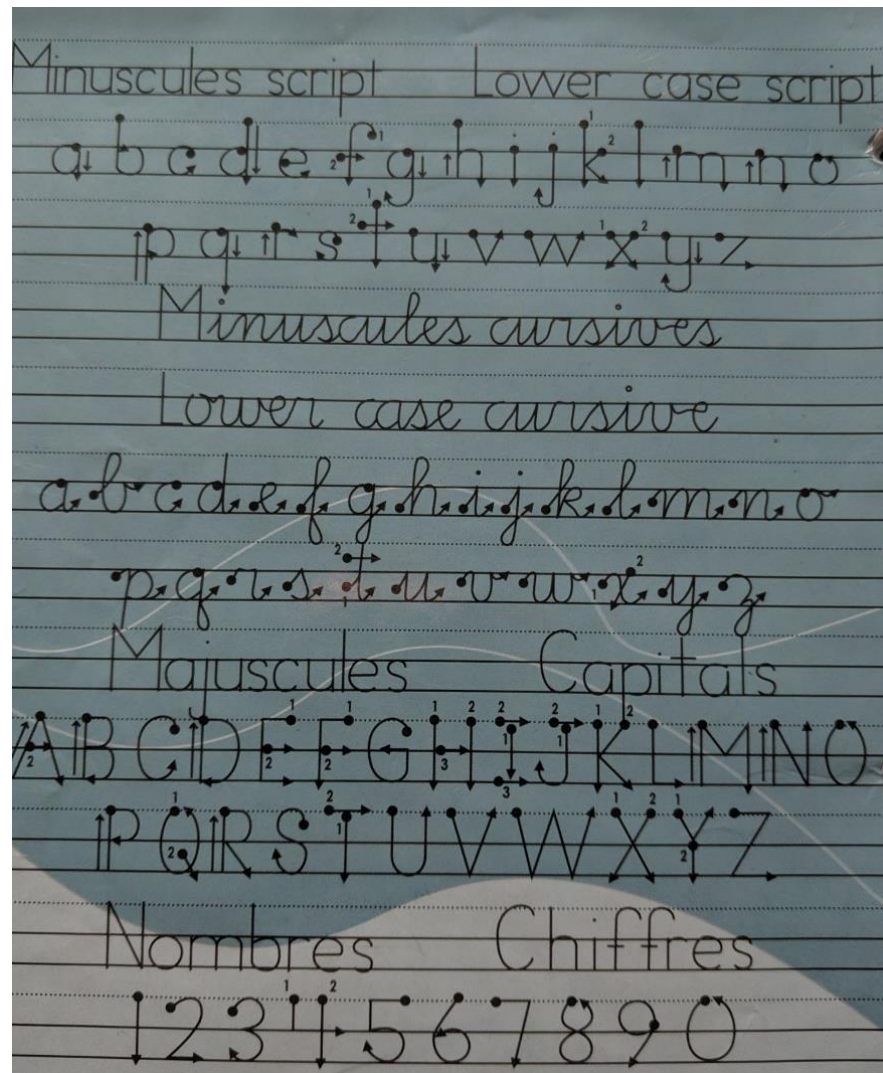 Minuscules script Lower case script
a b c d e f g h i j k l m n o
p q r s t u v w x y z
Minuscules cursives
Lower case cursive
a b c d e f g h i j k l m n o
p q r s t u v w x y z
Majuscules Capitals
A B C D E F G H I J K L M N O
P Q R S T U V W X Y Z
Nombres Chiffres
1 2 3 4 5 6 7 8 9 0